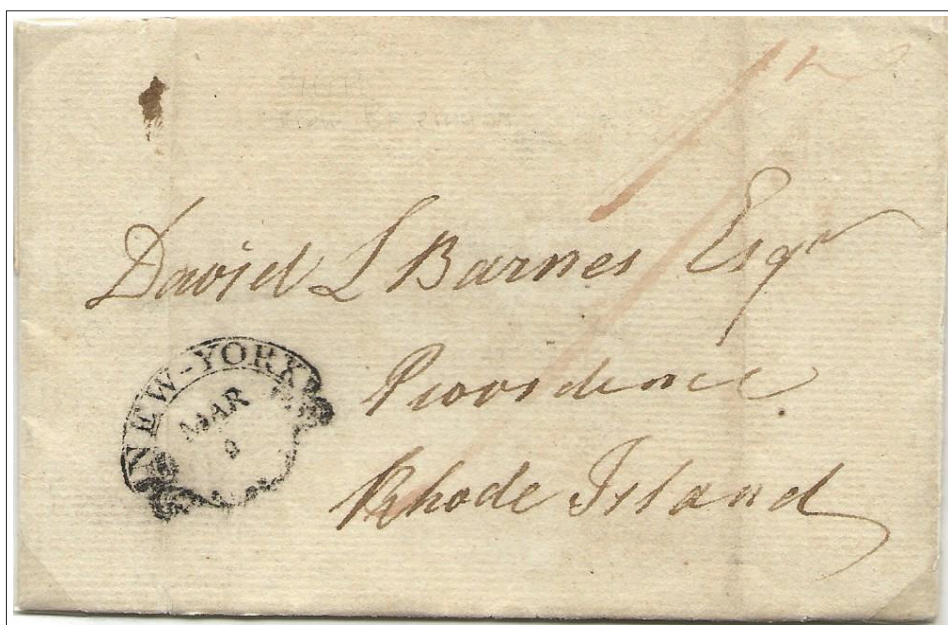 David L Barnes Esqr
Providence
Rhode Island
NEW-YORK
MAR